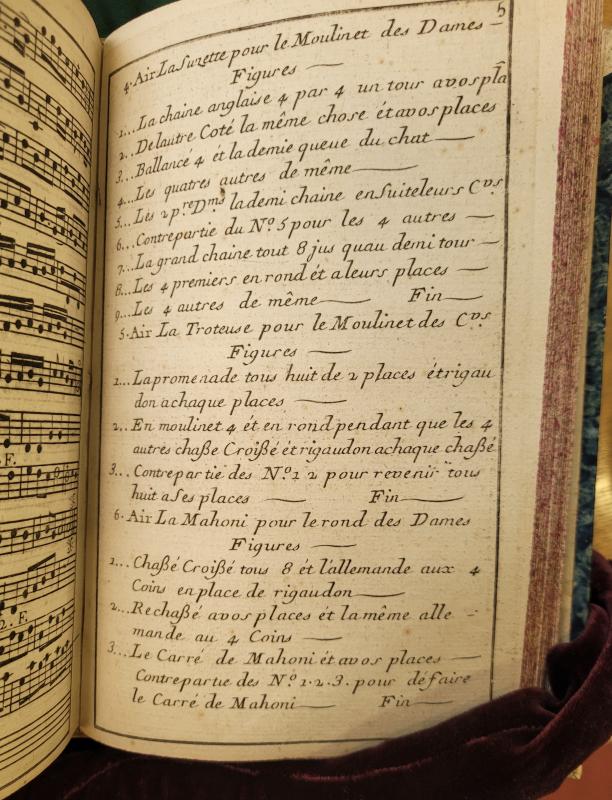 5
4. Air La Suzette pour le Moulinet des Dames —
Figures —
1... La chaine anglaise 4 par 4 un tour avos pla
2.. De lautre Coté la même chose ét avos places
3... Ballancé 4 ét la demie queue du chat —
4... Les quatres autres de même —
5... Les 2 p.rs Dmes la demi chaine en Suite leurs C.vs
6... Contrepartie du N.o 5 pour les 4 autres —
7... La grand chaine tout 8 jus quau demi tour —
8... Les 4 premiers en rond ét a leurs places —
9... Les 4 autres de même — Fin —
5. Air La Troteuse pour le Moulinet des C.vs
Figures —
1... La promenade tous huit de 2 places ét rigau
don a chaque places —
2... En moulinet 4 ét en rond pendant que les 4
autres chaßé Croißé ét rigaudon a chaque chaßé
3... Contrepartie des N.o 1 2 pour revenir tous
huit a Ses places — Fin —
6. Air La Mahoni pour le rond des Dames
Figures —
1... Chaßé Croißé tous 8 ét l'allemande aux 4
Coins en place de rigaudon —
2... Rechaßé avos places ét la même alle -
mande au 4 Coins —
3... Le Carré de Mahoni ét avos places —
Contrepartie des N.o 1. 2. 3. pour défaire
le Carré de Mahoni — Fin —
2.F.